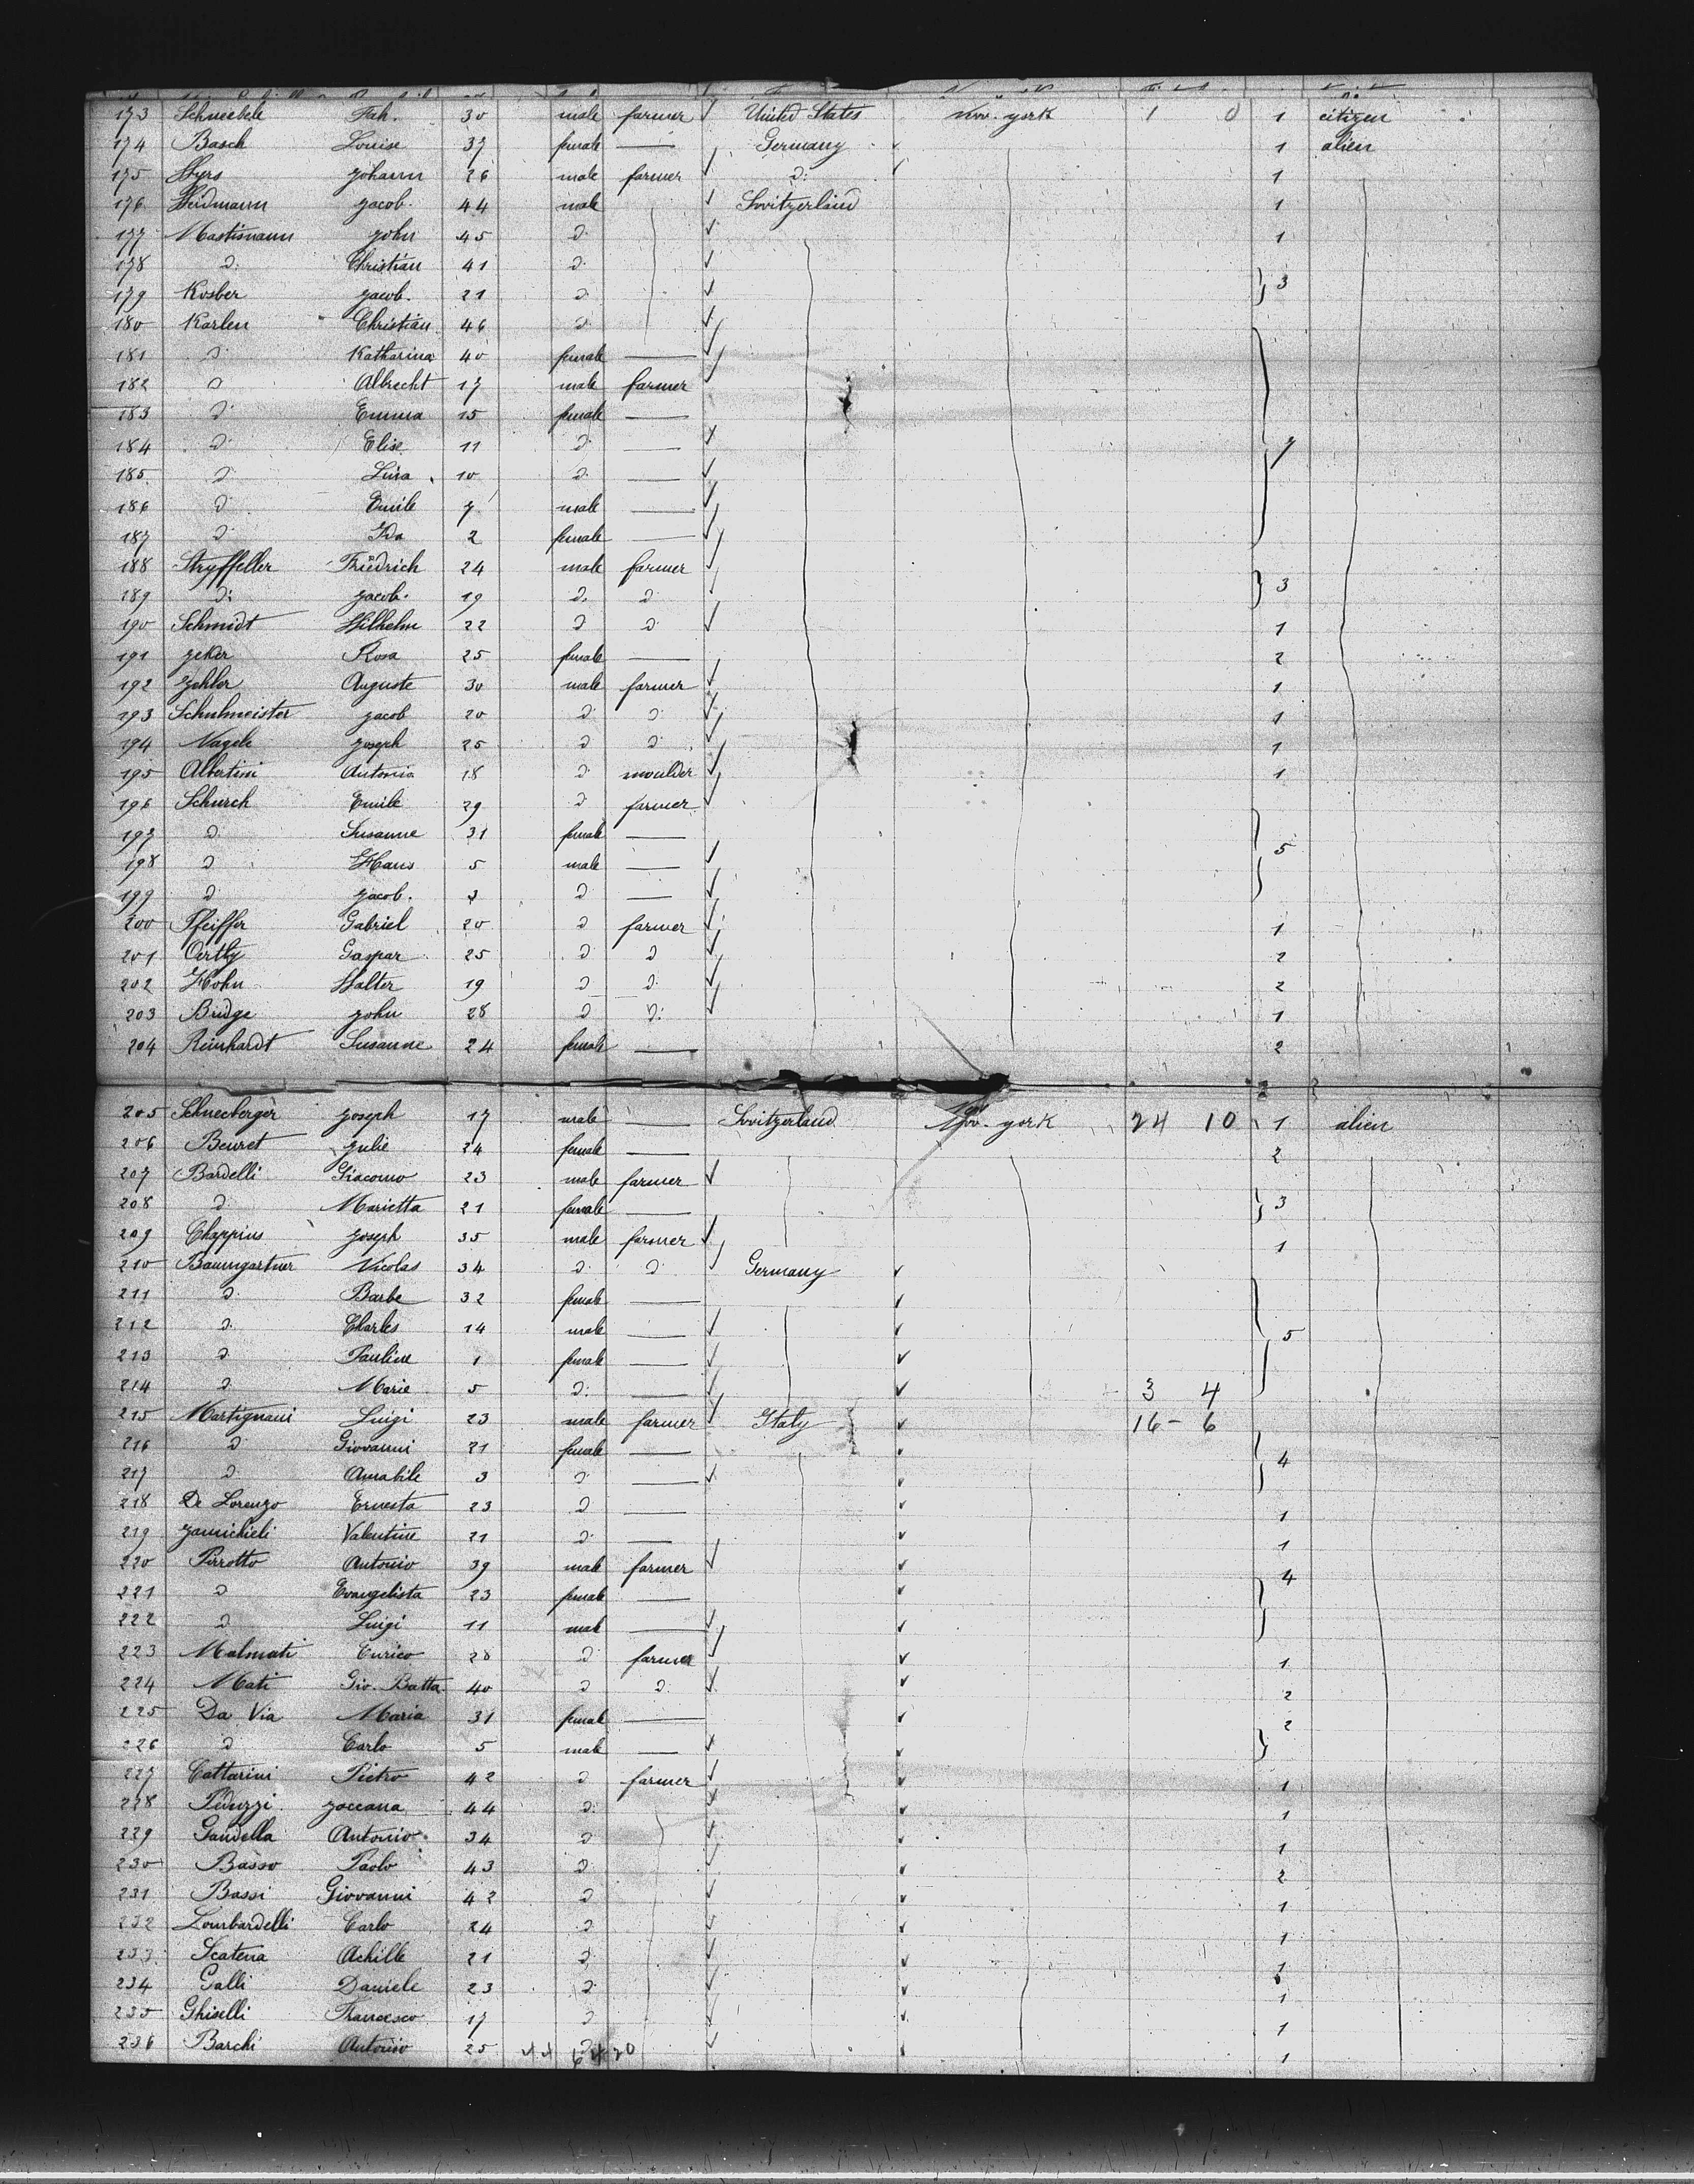 173 Schneebele Fah. 30 male farmer United States New-york 1 0 1 citizen
174 Basch Louise 37 female — Germany 1 alien
175 Wyss Johann 26 male farmer d: 1
176 Weidmann Jacob. 44 male Switzerland 1
177 Mastimann John 45 d. 1
178 d. Christian 41 d.
179 Kosber Jacob. 21 d. 3
180 Karlen Christian 46 d.
181 d. Katharina 40 female —
182 d Albrecht 17 male farmer
183 d. Emma 15 female —
184 d. Elise 11 d. — 7
185 d. Lina 10 d. —
186 d. Emile 7 male —
187 d. Ida 2 female —
188 Stryffeller Friedrich 24 male farmer
189 d: Jacob. 19 d. d. 3
190 Schmidt Wilhelm 22 d d. 1
191 Jeker Rosa 25 female — 2
192 Jehler Auguste 30 male farmer 1
193 Schulmeister Jacob 20 d. d. 1
194 Nageli Joseph 25 d d. 1
195 Albertini Antonio 18 d. moulder 1
196 Schurch Emile 29 d farmer
197 d. Susanne 31 female —
198 d Hans 5 male — 5
199 d Jacob. 3 d —
200 Pfeiffer Gabriel 20 d farmer 1
201 Oertly Gaspar 25 d d 2
202 Hohn Walter 19 d d. 2
203 Bridge John 28 d d: 1
204 Reinhardt Susanne. 24 female — 2
205 Schneeberger Joseph 17 male — Switzerland New-york 24 10 1 alien
206 Beuret Julie 24 female — 2
207 Bardelli Giacomo 23 male farmer
208 d. Marietta 21 female — 3
209 Chappius Joseph 35 male farmer 1
210 Baumgartner Nicolas 34 d. d. Germany
211 d. Barbe 32 female —
212 d. Charles 14 male — 5
213 d Pauline 1 female —
214 d. Marie 5 d. — 3 4
215 Martignani Luigi 23 male farmer Italy 16- 6
216 d Giovanni 21 female — 4
217 d. Amabile 3 d. —
218 De Lorenzo Ernesta 23 d — 1
219 Jamichieli Valentine 21 d. — 1
220 Pirrotto Antonio 39 male farmer 4
221 d Evangelista 23 female —
222 d. Luigi 11 male —
223 Malmati Enrico 28 d. farmer 1
224 Mati Gio. Batta 40 d d. 2
225 Da Via Maria 31 female — 2
226 d Carlo 5 male —
227 Cattarini Pietro 42 d farmer 1
228 Peduzzi Joccana 44 d. 1
229 Gandella Antonio 34 d 1
230 Basso Paolo 43 d. 2
231 Bassi Giovanni 42 d 1
232 Lombardelli Carlo 24 d 1
233 Scatena Achille 21 d 1
234 Galli Daniele 23 d. 1
235 Ghiselli Francesco 17 d 1
236 Barchi Antonio 25 d 1